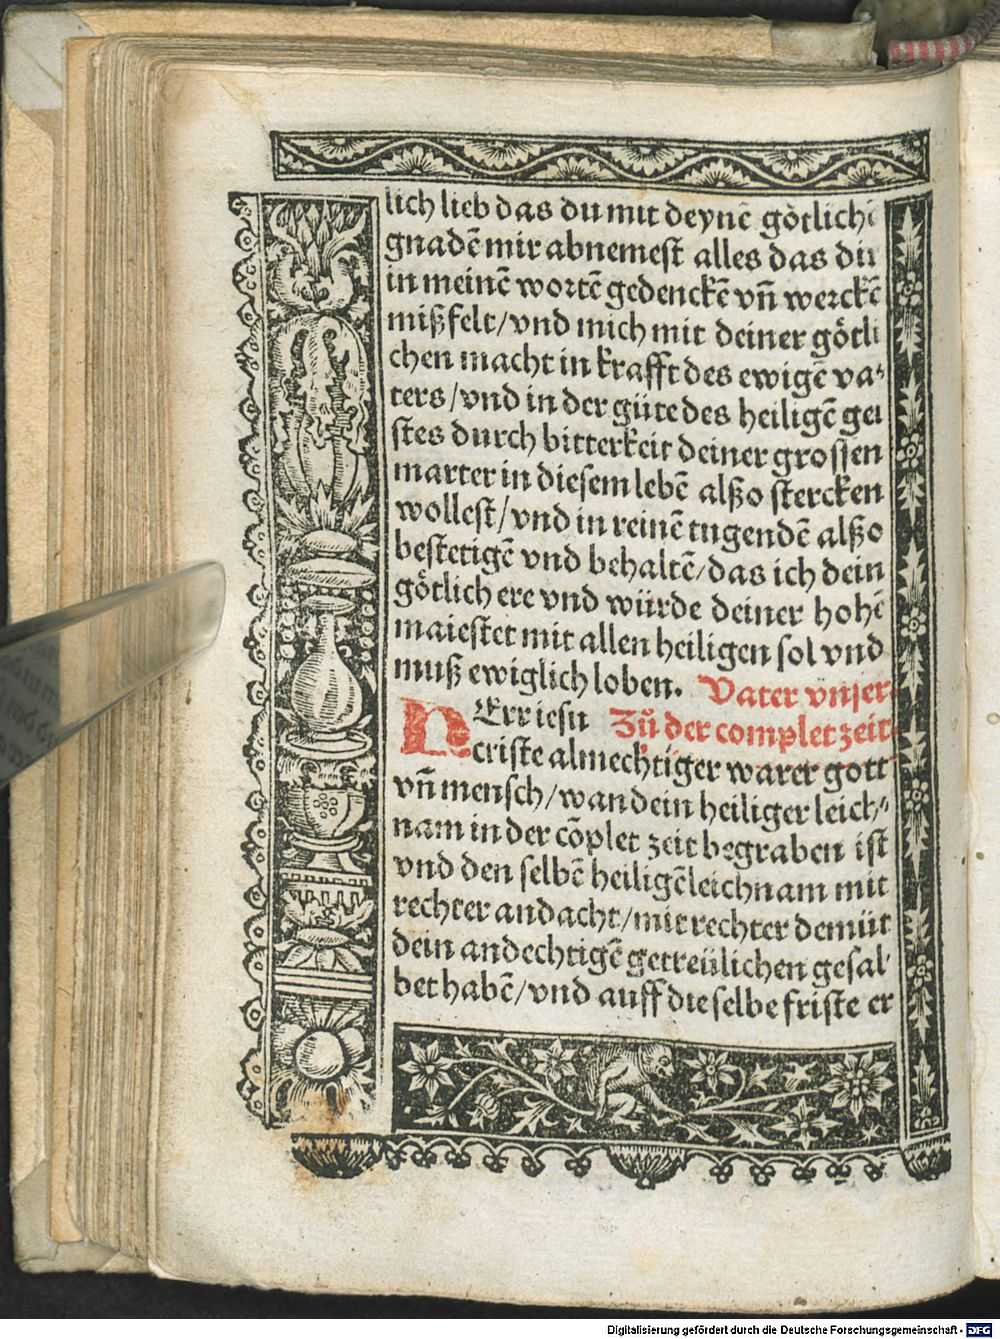 lich lieb das du mit deynē götlichē
gnadē mir abnemest alles das dir
in meinē wortē gedenckē vñ werckē
mißfelt/vnd mich mit deiner götli
chen macht in krafft des ewigē va⸗
ters/vnd in der güte des heiligē gei
stes durch bitterkeit deiner grossen
marter in diesem lebē alßo stercken
wollest/vnd in reinē tugendē alßo
bestetigē vnd behaltē/das ich dein
götlich ere vnd würde deiner hohē
maiestet mit allen heiligen sol vnd
muß ewiglich loben. Vater vnser
HErr iesu Zů der complet zeit
criste almechtiger warer gott
vñ mensch/wan dein heiliger leich⸗
nam in der cōplet zeit begraben ist
vnd den selbē heiligē leichnam mit
rechter andacht/mit rechter demüt
dein andechtigē getreülichen gesal⸗
bet habē/vnd auff die selbe friste er
Digitalisierung gefördert durch die Deutsche Forschungsgemeinschaft - DFG